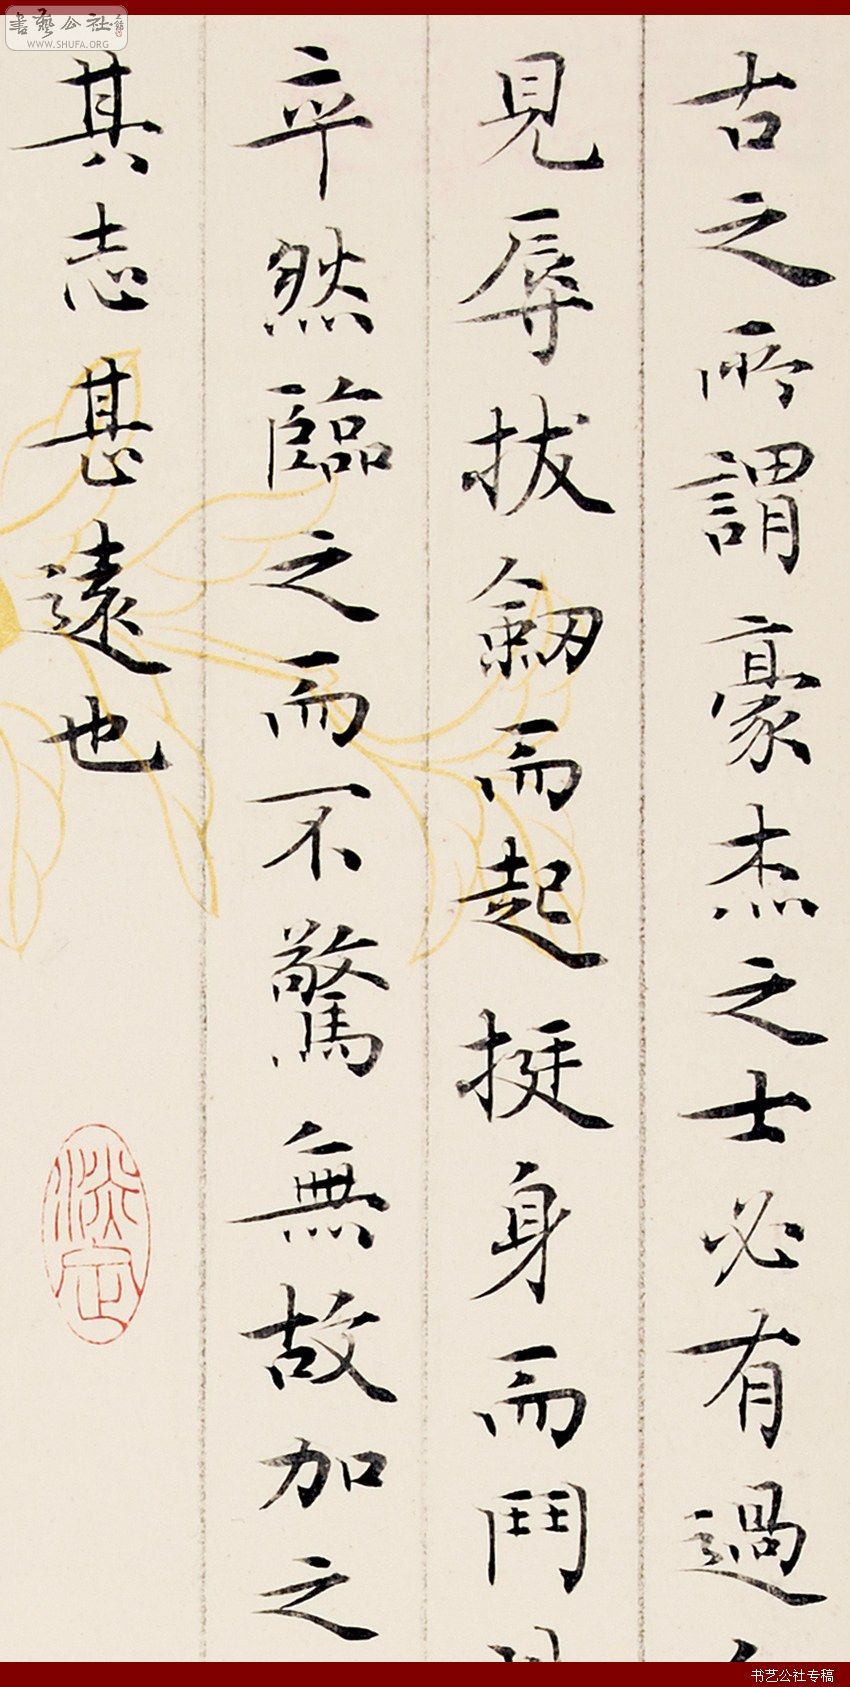 古之所謂豪杰之士必有過
見辱拔劒而起挺身而鬥
卒然臨之而不驚無故加之
其志甚遠也
書藝公社
WWW.SHUFA.ORG
书艺公社专稿